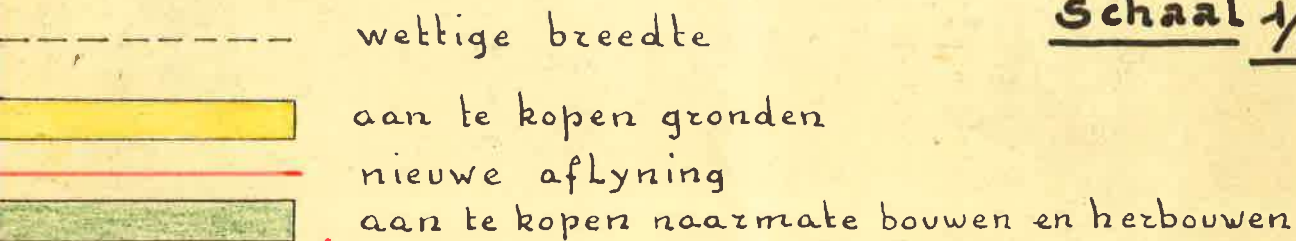 wettige breedte
Schaal 1/
aan te kopen gronden
nieuwe aflyning
aan te kopen naarmate bouwen en herbouwen